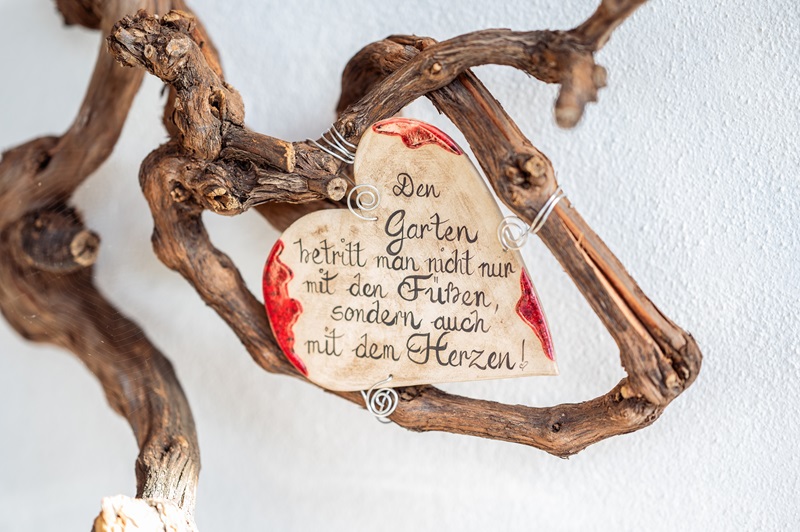 Den
Garten
betritt man nicht nur
mit den Füßen,
sondern auch
mit dem Herzen!